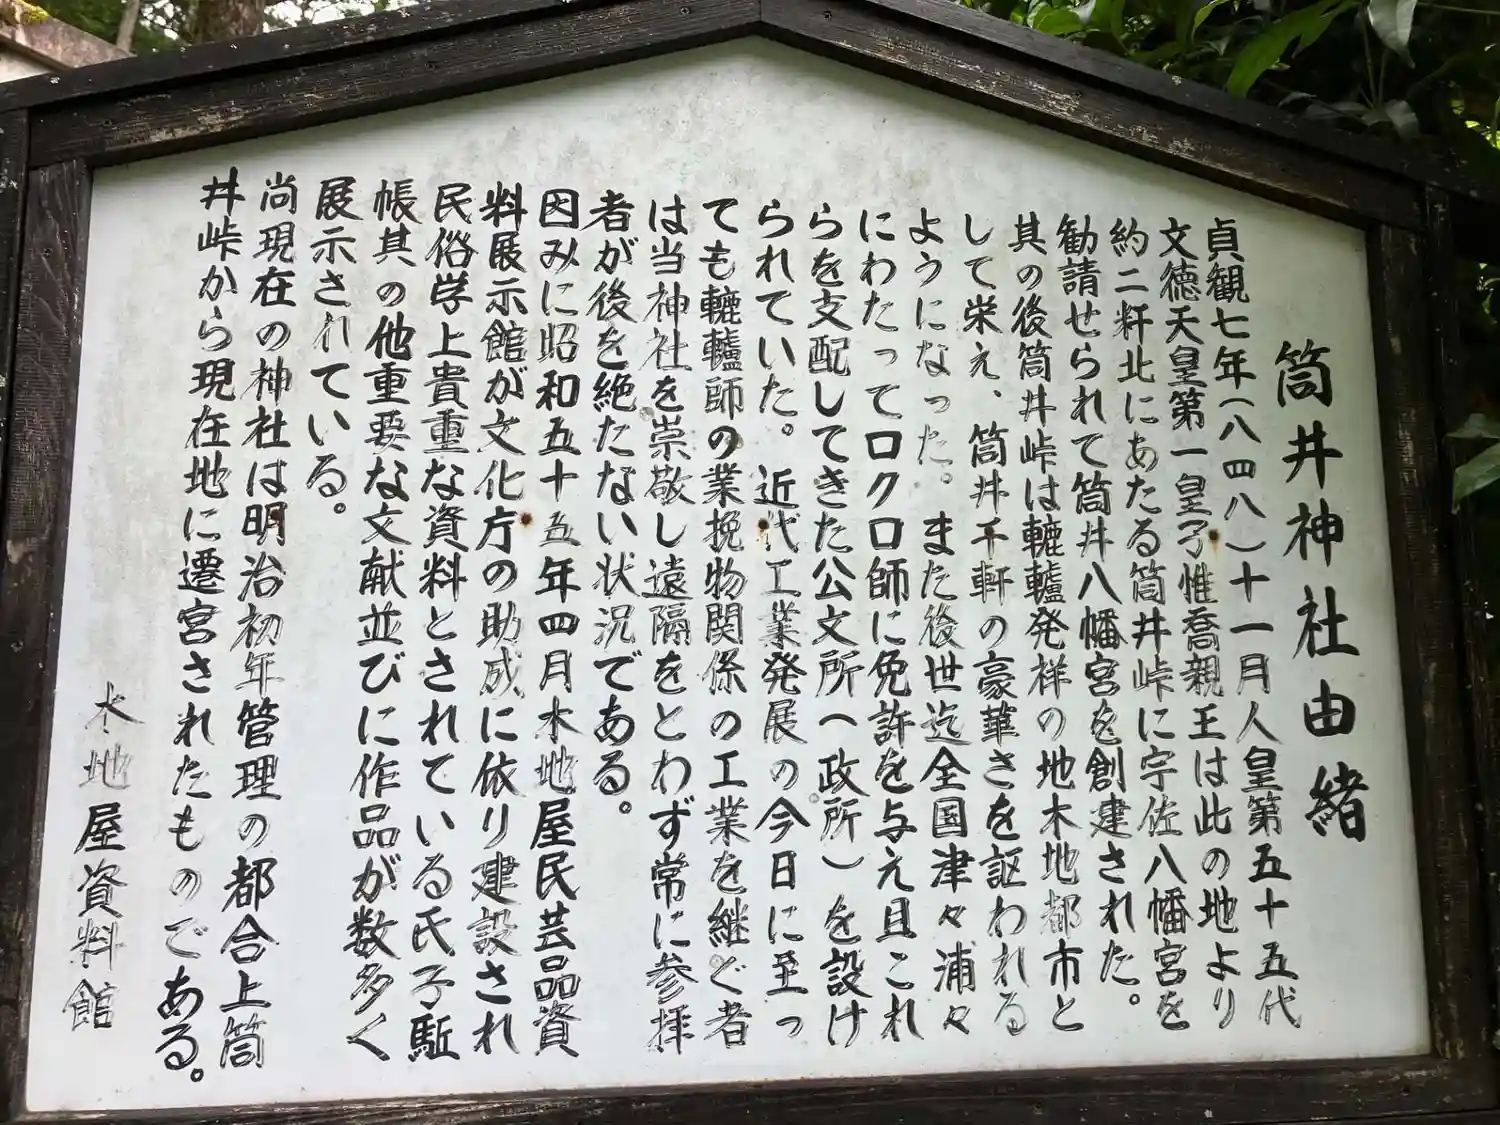 筒井神社由緒
貞観七年(八四八)十一月人皇第五十五代
文徳天皇第一皇子惟喬親王は此の地より
約二粁北にあたる筒井峠に宇佐八幡宮を
勧請せられて筒井八幡宮を創建された。
其の後筒井峠は轆轤発祥の地木地都市と
して栄え、筒井千軒の豪華さを謳われる
ようになった。また後世迄全国津々浦々
にわたってロクロ師に免許を与え且これ
らを支配してきた公文所(政所)を設け
られていた。近代工業発展の今日に至っ
ても轆轤師の業挽物関係の工業を継ぐ者
は当神社を崇敬し遠隔をとわず常に参拝
者が後を絶たない状況である。
因みに昭和五十五年四月木地屋民芸品資
料展示館が文化庁の助成に依り建設され
民俗学上貴重な資料とされている氏子駈
帳其の他重要な文献並びに作品が数多く
展示されている。
尚現在の神社は明治初年管理の都合上筒
井峠から現在地に遷宮されたものである。
木地屋資料館